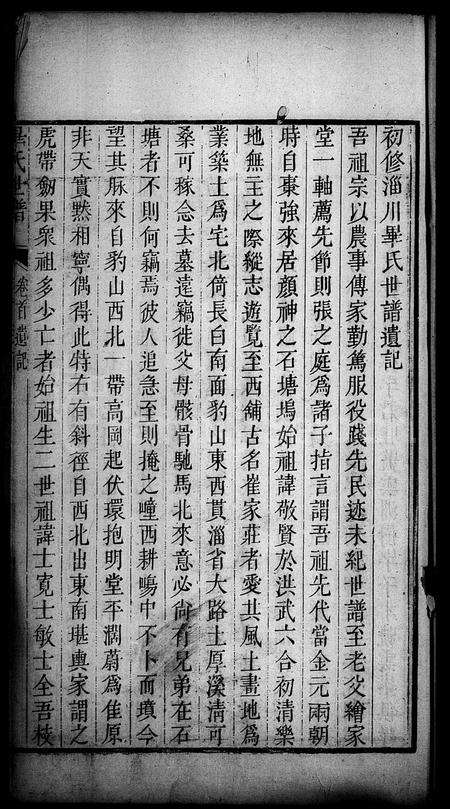 初修淄川畢氏世譜遺記
吾祖宗以農事傳家勤篤服役踐先民迹未紀世譜至老父繪家
堂一軸薦先節則張之庭爲諸子指言謂吾祖先代當金元兩朝
時自棗強來居顏神之石塘塢始祖諱敬賢於洪武六合初清樂
地無主之際縱志遊覽至西舖古名崔家莊者愛其風土畫地爲
業築土爲宅北倚長白南面豹山東西貫淄省大路土厚溪清可
桑可稼念去墓遠竊徙父母骸骨馳馬北來意必尚有兄弟在石
塘者不則何竊焉彼人追急至則掩之疃西耕塲中不卜而墳今
望其脉來自豹山西北一帶高岡起伏環抱明堂平濶蔚爲佳原
非天實黙相寧偶得此特右有斜徑自西北出東南堪輿家謂之
虎帶劒果衆祖多少亡者始祖生二世祖諱士寬士敏士全吾枝
畢氏世譜 卷首遺記